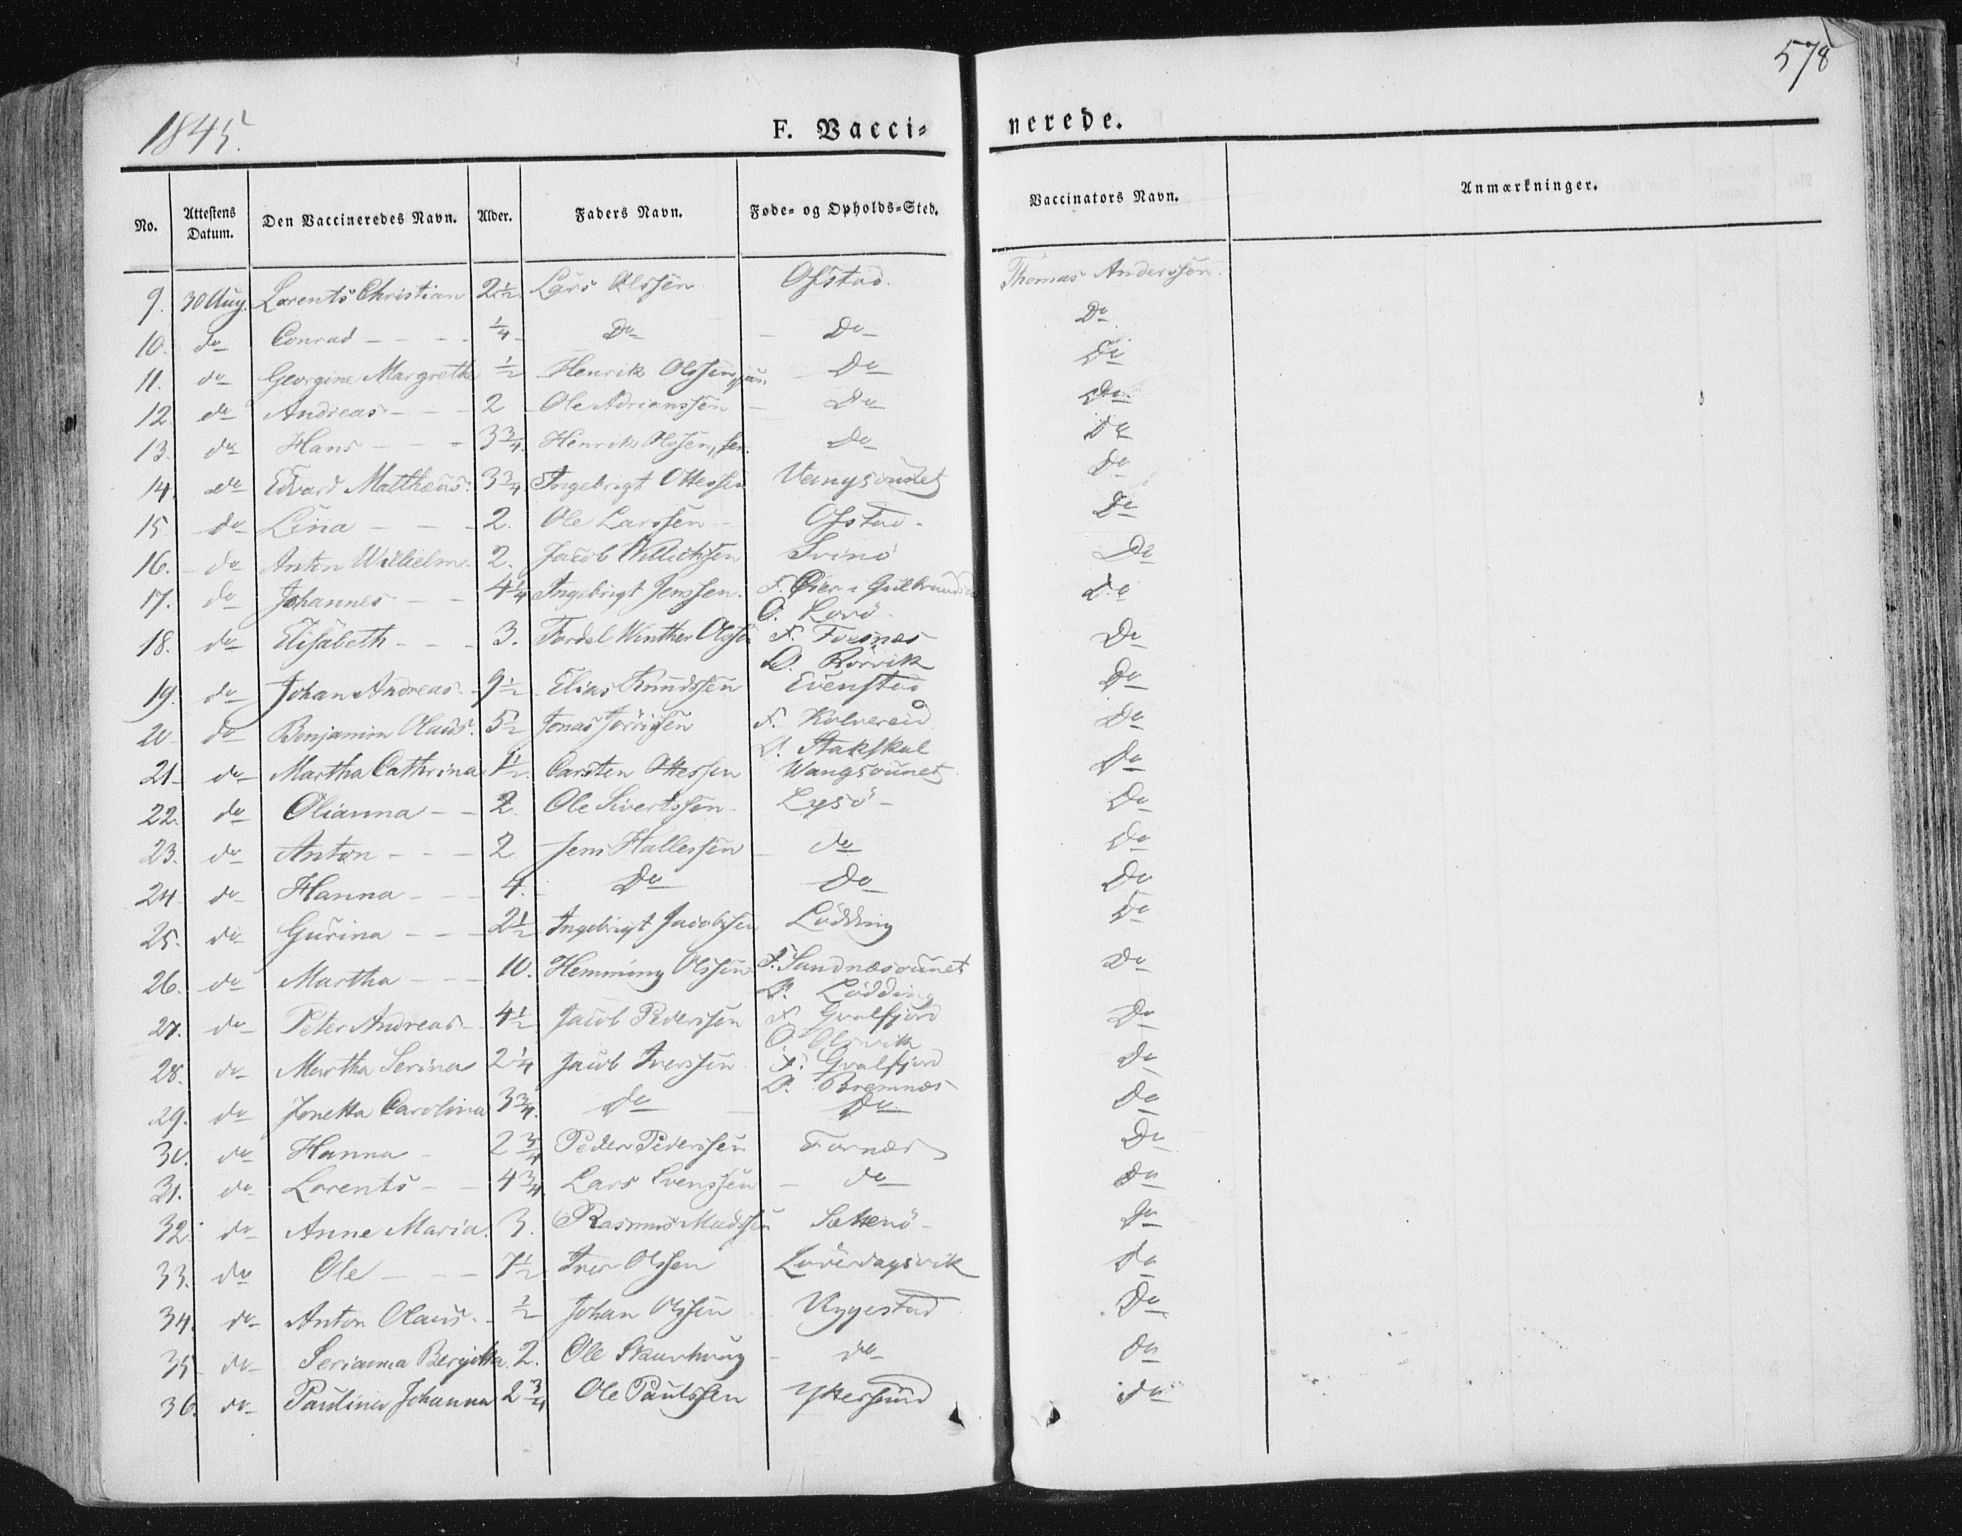 578
1845.
F. Vacci- nerede.
No. Attestens Datum. Den Vaccineredes Navn. Alder. Faders Navn. Føde- og Opholds-Sted. Vaccinators Navn. Anmærkninger.
9. 30 Aug. Lorents Christian 2 1/2 Lars Olssen Ofstad. Thomas Anderssen.
10. do Conrad - - - 1/4 - Do - - Do - Do
11. do Georgine Margrethe 1/2 Henrik Olssen, jun. - Do - Do
12. do Andreas - - - 2 Ole Adrianssen - Do - Do
13. do Hans - - - 3 3/4 Henrik Olssen, sen. Do - Do
14. do Edvard Mattheus 3 3/4 Ingebrigt Ottessen Vangsundet Do
15. do Lina - - - 2. Ole Larssen - Ofstad - Do
16. do Anton Wilhelm 2. Jacob Svinö Do
17. do Johannes - - 4 1/4 Ingebrigt Jenssen. F. Öier i Gulbrandsd. Do
O. Lovö
18. do Elisabeth - - - 3. Fordel Winther Olssen F. Fosnæs Do
O. Rörvik
19. do Johan Andreas - 9 1/2 Elias Knudssen Evenstad Do
20 do Benjamin Olaus. 5 1/2 Jonas F. Kolvereid Do
O.
21 do Martha Cathrina 1 1/2 Carsten Ottessen Wangsundet Do
22. do Olianna - - 2. Ole Sivertssen - Lysö - Do
23. do Anton - - - 2. Jens Hallessen - do Do
24. do Hanna - - - 4. Do Do Do
25. do Gurina - - - 2 1/2 Ingebrigt Jacobssen Lödding Do
26. do Martha - - - 10. Hemming Olssen F. Sandnæssundet Do
O. Lödding
27. do Peter Andreas - 4 1/2 Jacob Pederssen F. Gvalfjord Do
O. Olsvik
28. do Martha Serina 2 1/4 Jacob Iverssen F. Gvalfjord Do
O. Bremnæs
29. do Jonetta Carolina 3 3/4. Do - Do Do
30. do Hanna - 2 3/4 Peder Pederssen Fornæs Do
31. do Lorents - - 4 3/4 Lars Svenssen - do Do
32. do Anne Maria. 3. Rasmus Madssen Sætterö - Do
33. do Ole - - - 7 1/2 Iver Olssen Löverdagsvik Do
34. do Anton Olaus - 1/2 Johan Olssen Vyggestad Do
35 do Serianna Bergitta. 2. Ole Skaurhaug - do Do
36. do Paulina Johanna 2 3/4 Ole Paulssen Yttersund do